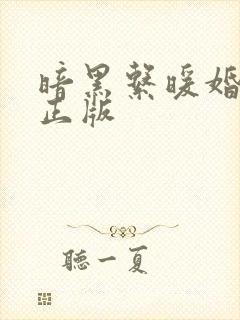 暗黑系暖婚
正版
聽一夏